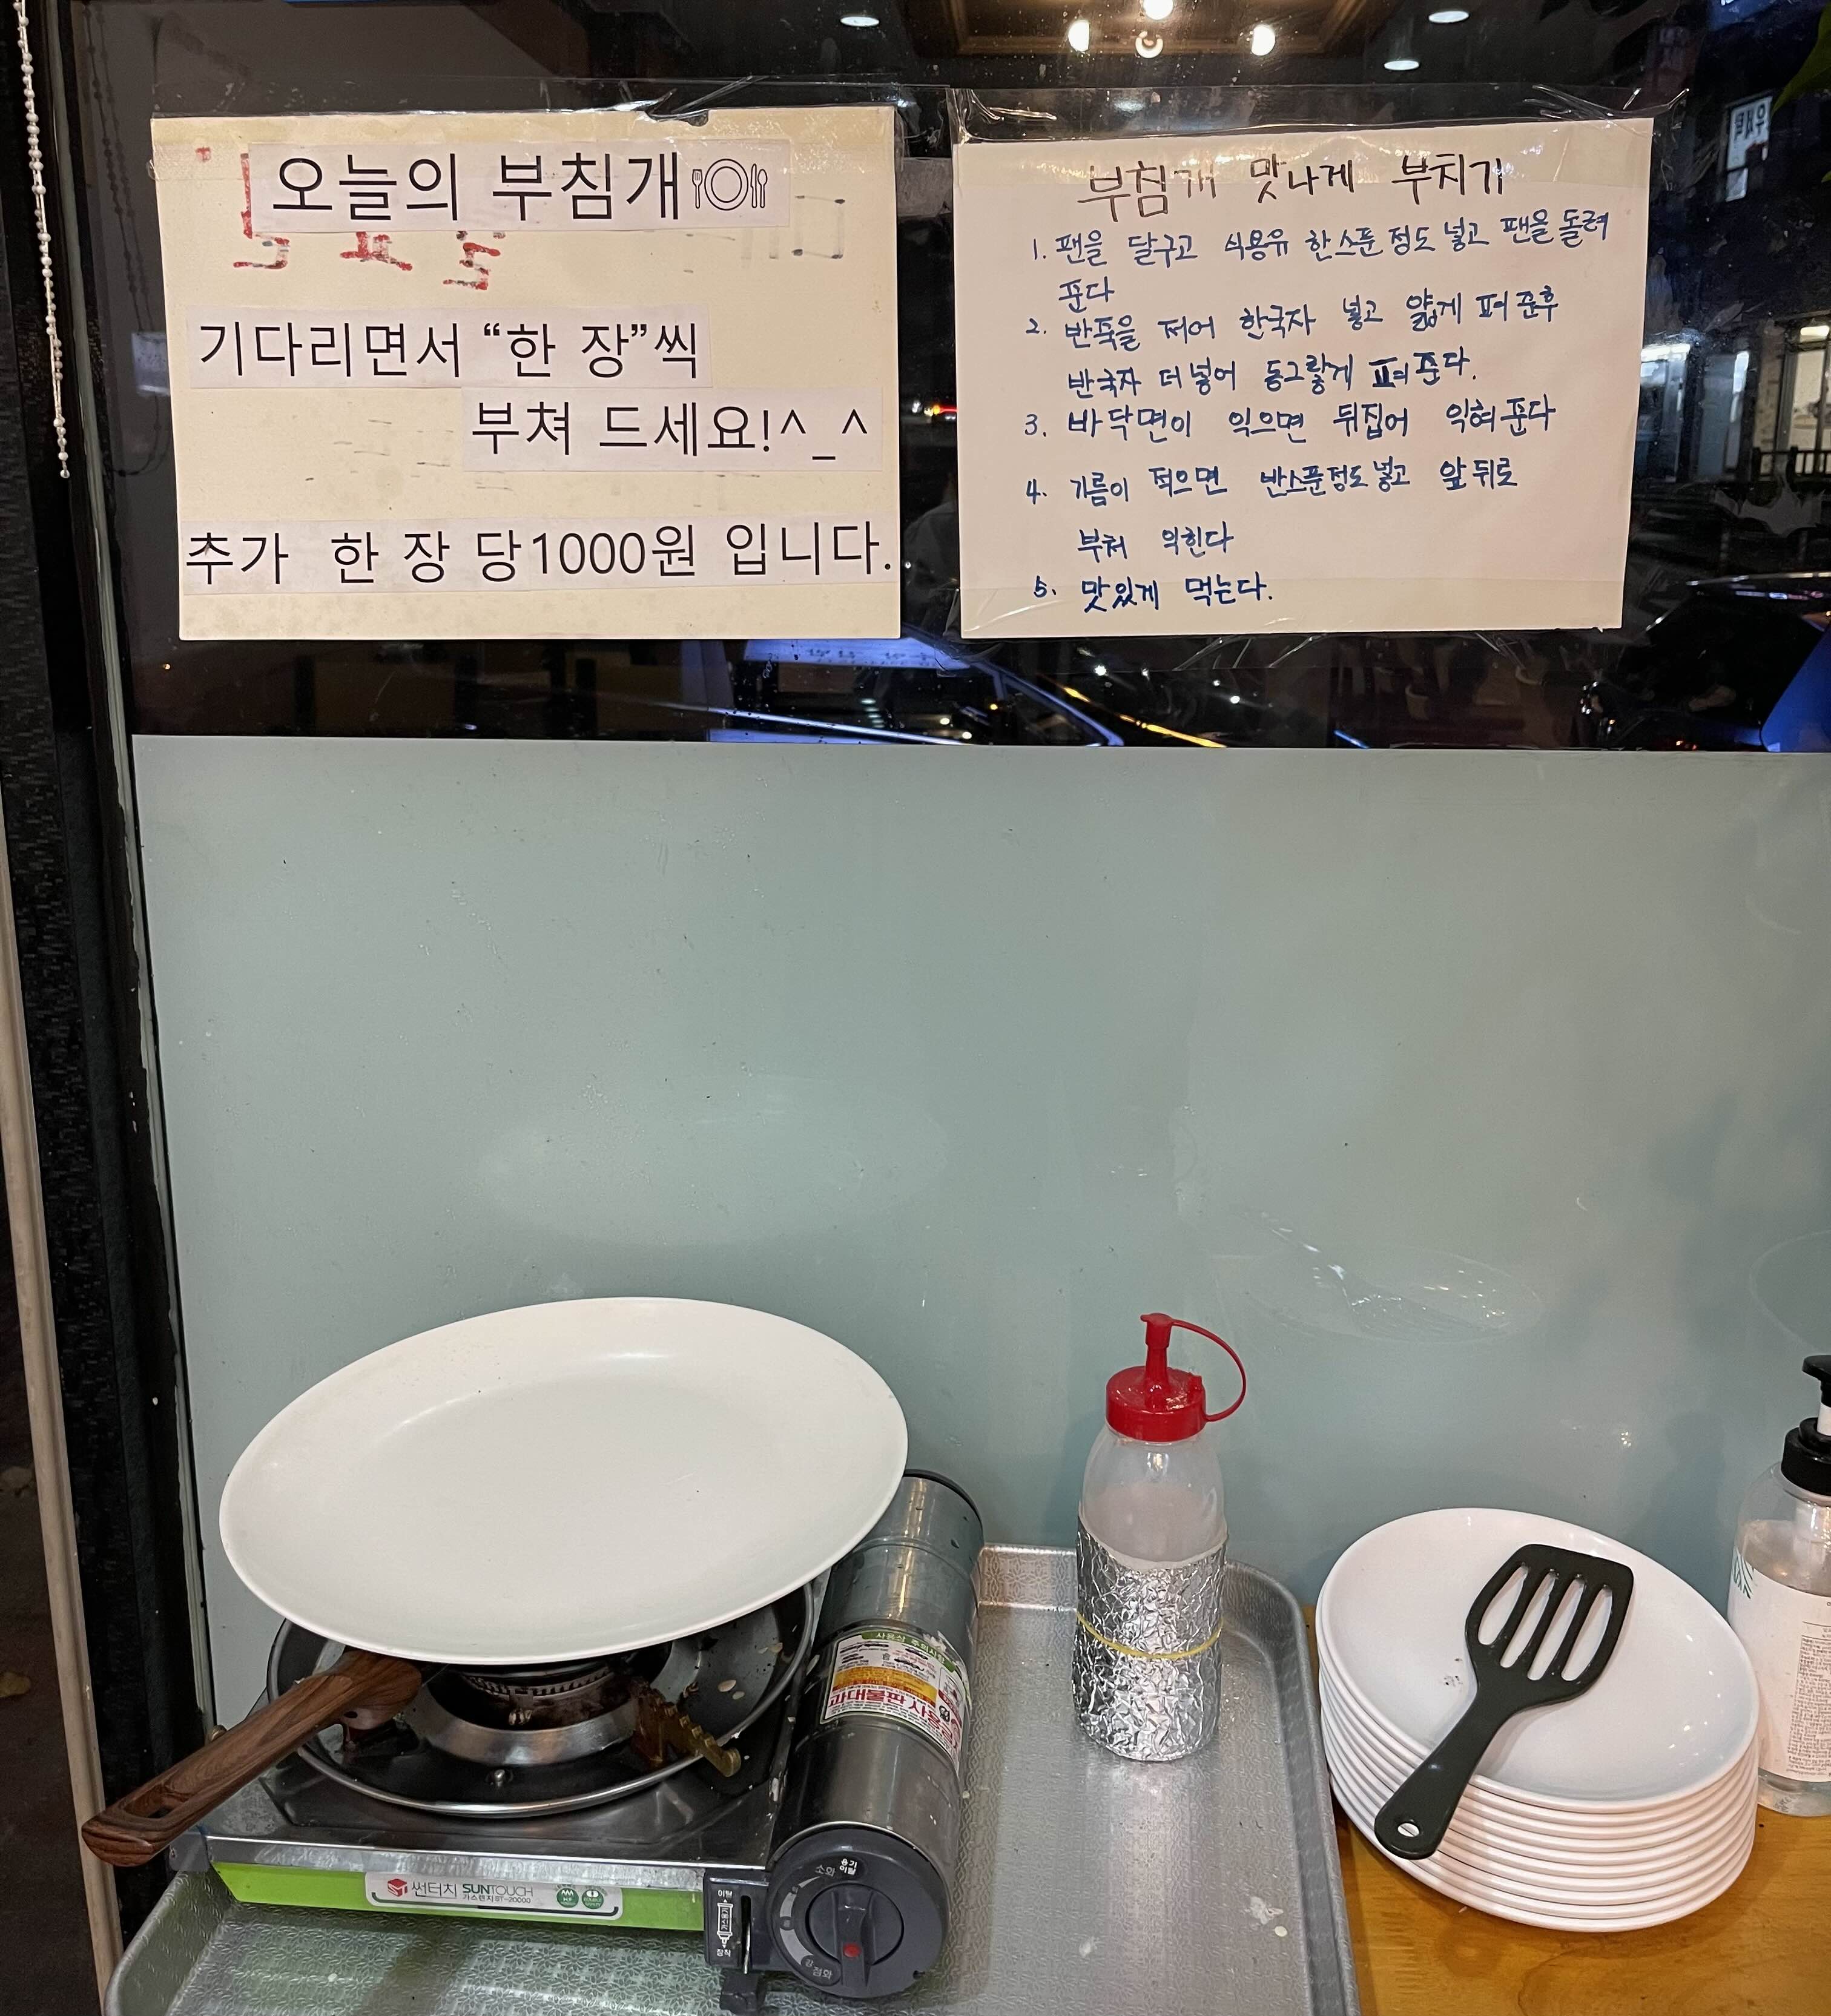 오늘의 부침개
기다리면서 “한 장”씩
부쳐 드세요!^_^
추가 한 장 당1000원 입니다.
부침개 맛나게 부치기
1. 팬을 달구고 식용유 한스푼정도 넣고 팬을 돌려
준다
2. 반죽을 저어 한국자 넣고 얇게 펴준후
반국자 더 넣어 동그랗게 펴준다.
3. 바닥면이 익으면 뒤집어 익혀준다
4. 기름이 적으면 반스푼정도 넣고 앞뒤로
부쳐 익힌다
5. 맛있게 먹는다.
과대불판 사용금
썬터치 SUNTOUCH
가스렌지 ST-20000
소화
용기
이탈
이탈
장착
점화